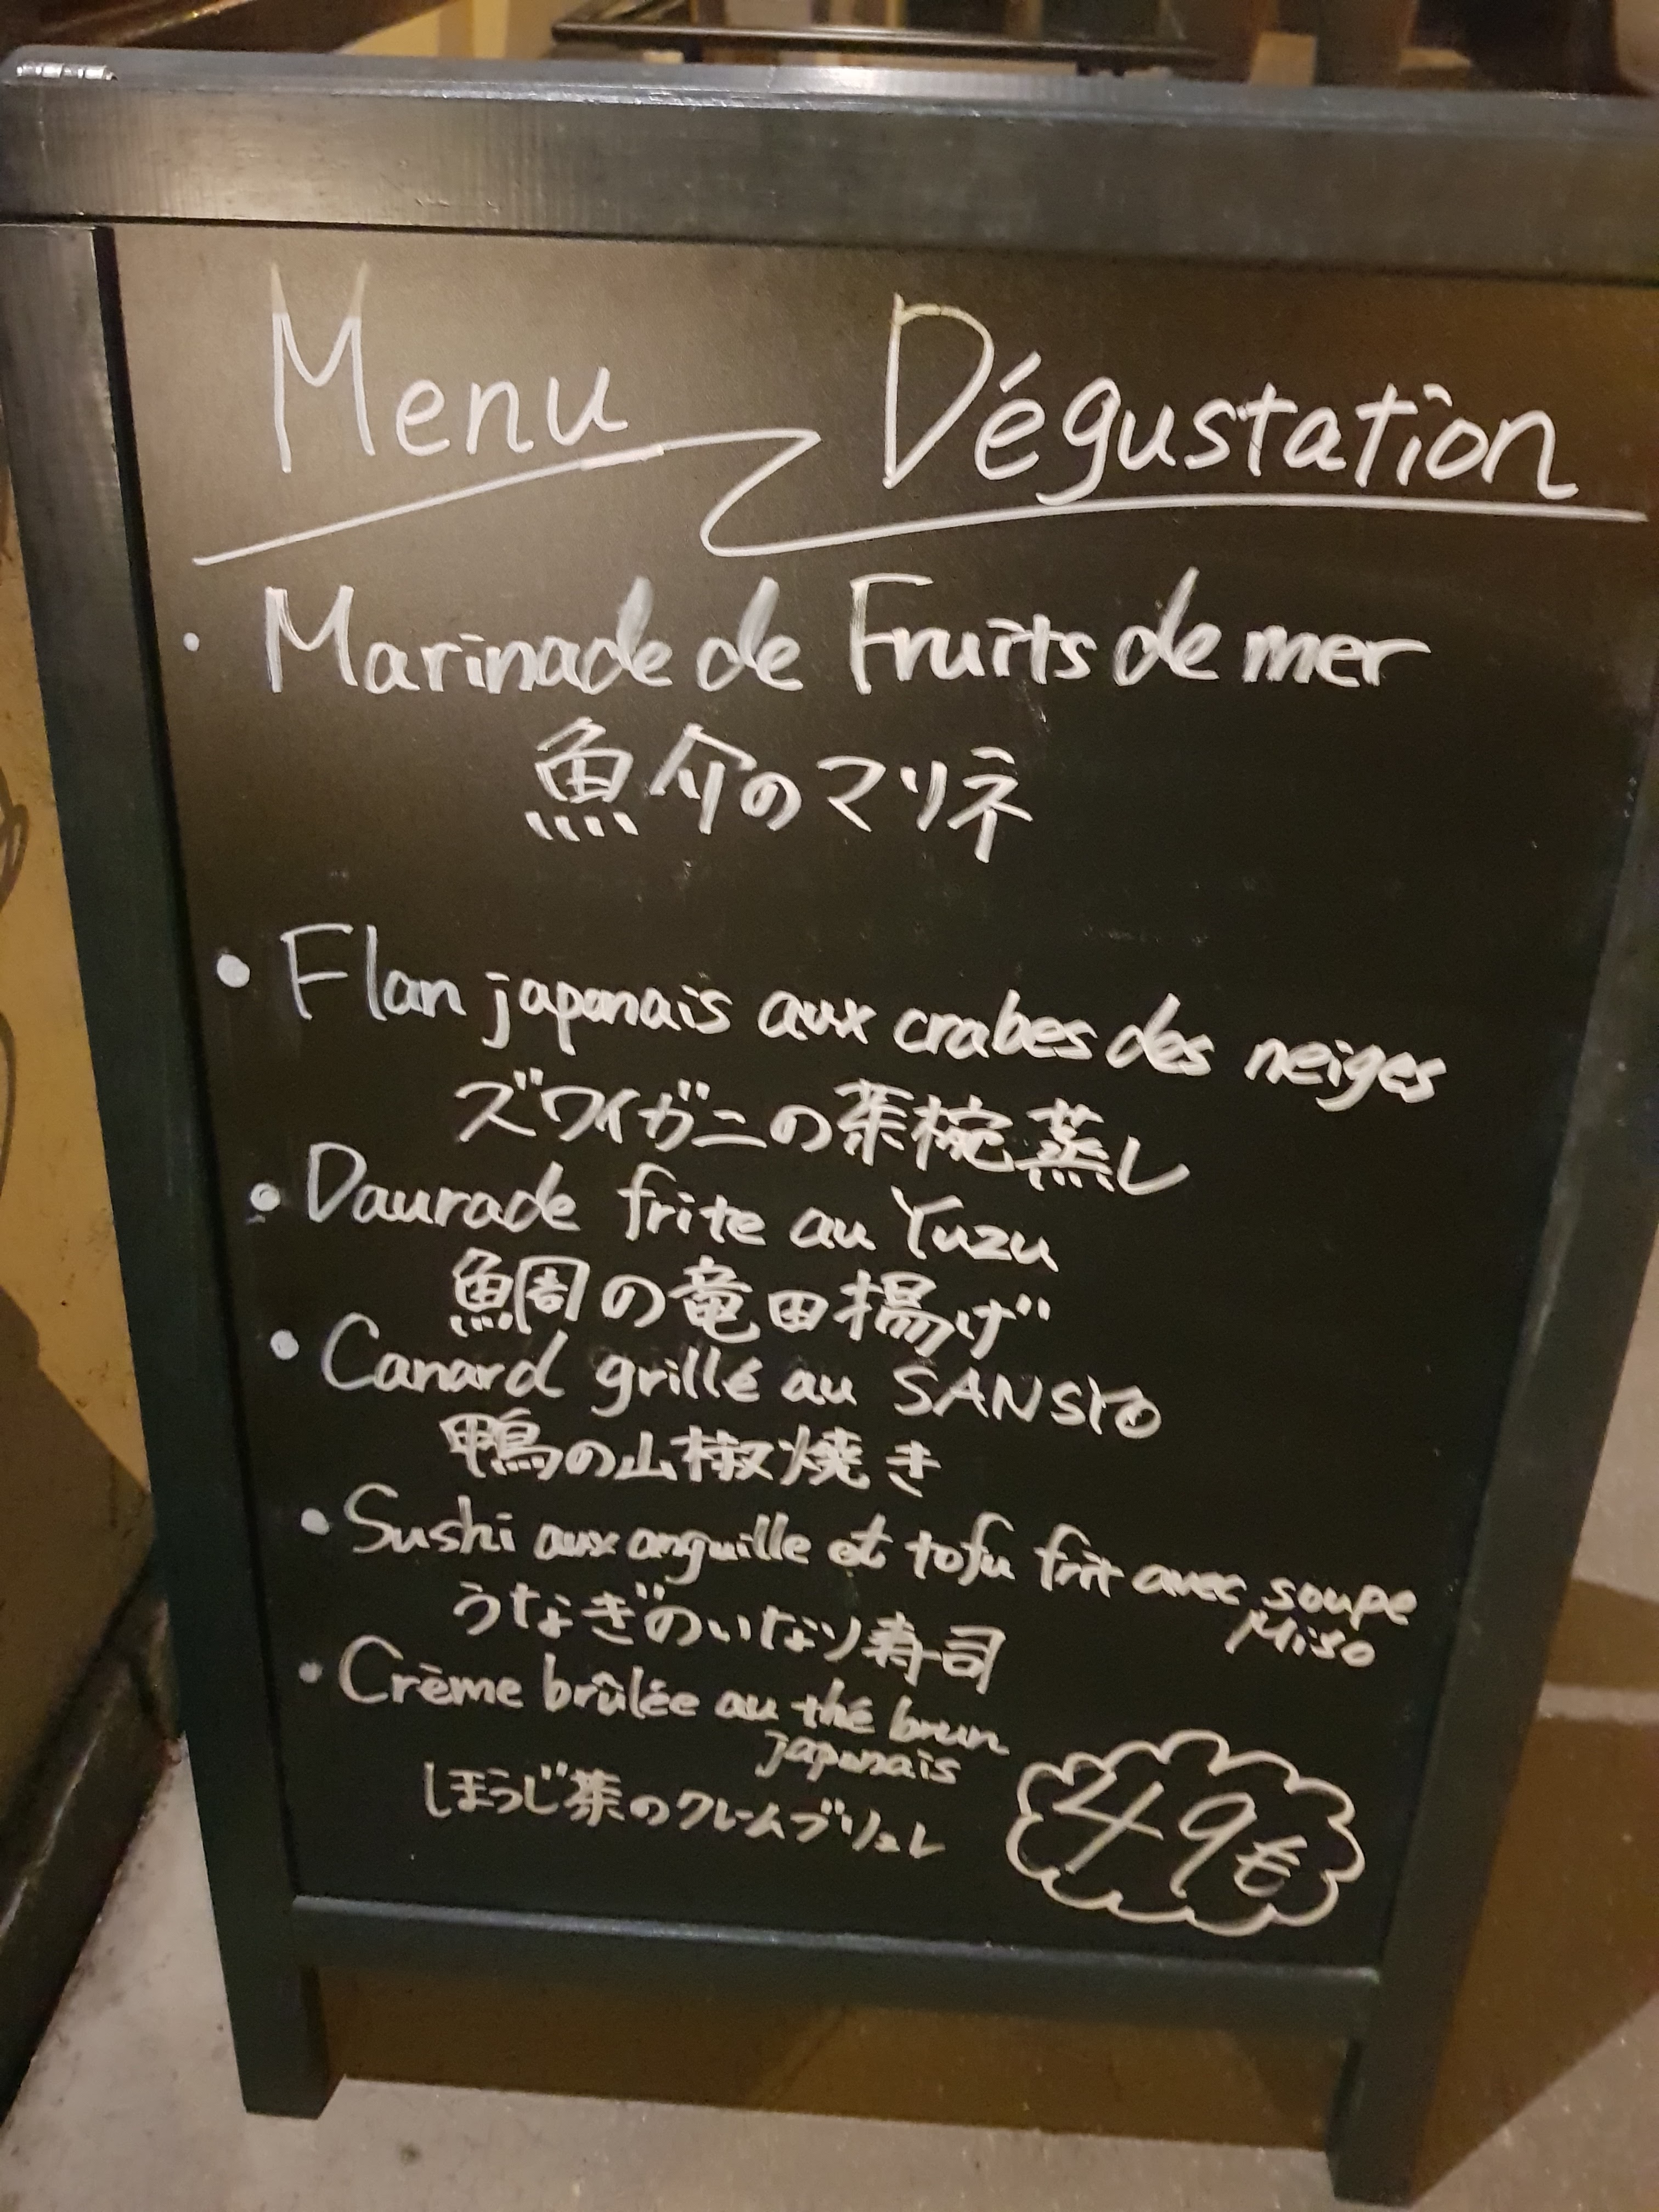 Menu Dégustation
• Marinade de Fruits de mer
魚介のマリネ
• Flan japonais aux crabes des neiges
ズワイガニの茶椀蒸し
• Daurade frite au Yuzu
鯛の竜田揚げ
• Canard grillé au SANSYO
鴨の山椒焼き
• Sushi aux anguille et tofu frit avec soupe
Miso
うなぎのいなり寿司
• Crème brûlée au thé brun
japonais
ほうじ茶のクレームブリュレ
49€